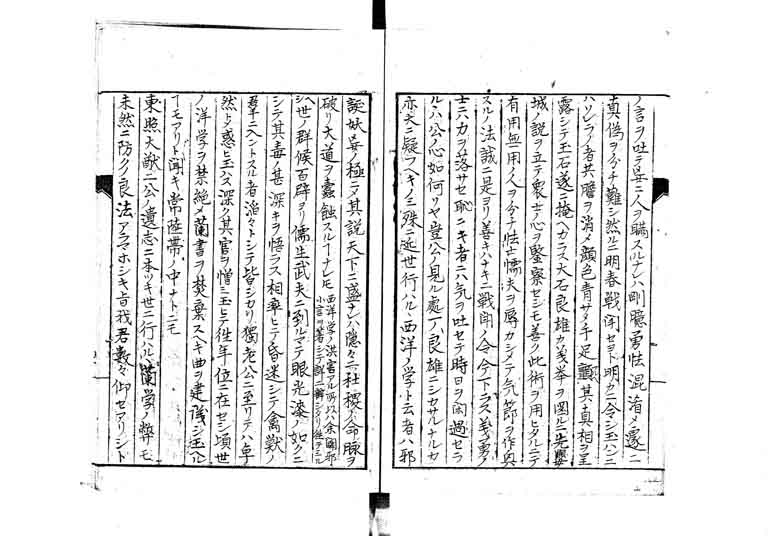 ノ言ヲ吐テ妄ニ人ヲ瞞スルナレハ剛臆勇怯混淆メ遽ニ
真偽ヲ分チ難シ然ルニ明春戦闘セヨト明カニ令シ玉ハンニ
ハソレラノ者共膽ヲ消メ顔色青サメ手足顫其真相ヲ呈
露シテ玉石遂ニ掩ヘカラス大石良雄カ義挙ヲ図ルニ先嬰
城ノ説ヲ立テ衆士ノ心ヲ鑒察セシモ善ク此術ヲ用ヒタルニテ
有用無用ノ人ヲ分チ怯士懦夫ヲ辱カシメテ気節ヲ作興
スルノ法誠ニ是ヨリ善キハナキニ戦闘ノ令今下ラス義勇ノ
士ニ力ヲ落サセ恥ナキ者ニハ気ヲ吐セテ時日ヲ閑過セラ
ルハ公ノ心如何ソヤ豈公ノ見ル處デハ良雄ニシカサルナルカ
亦夫ニ疑フヘキノ三殊ニ近世行ハル丶西洋ノ学ト云者ハ邪
誕妖妄ノ極ニメ其説天下ニ盛ナレハ隠々ニ社稷ノ命脈ヲ
破リ大道ヲ蠹蝕スルーナレモ 西洋学ノ洪害アル所以ハ余闢邪
小言ヲ著シテ詳ニ辯シタリ往テミル
シ世ノ群候百辟ヨリ儒生武夫ニ到ルマテ眼光漆ノ如クニ
シテ其毒ノ甚深キヲ悟ラス相率ヒテ昏迷シテ禽獣ノ
群ニ入ントスル者滔々トシテ皆シカリ獨老公ニ至リテハ卓
然トメ惑ヒ玉ハス深ク其害ヲ憎ミ玉ヒテ往年位ニ在セシ頃世
ノ洋学ヲ禁絶メ蘭書ヲ焚棄スヘキ由ヲ建議シ玉ヘル
ーモアリト聞キ常陸帯ノ中ナトニモ
東照大猷二公ノ遺志ニ本ツキ世ニ行ハル蘭学ノ弊モ
未然ニ防クノ良法アラマホシキ旨我君数々仰セアリシト